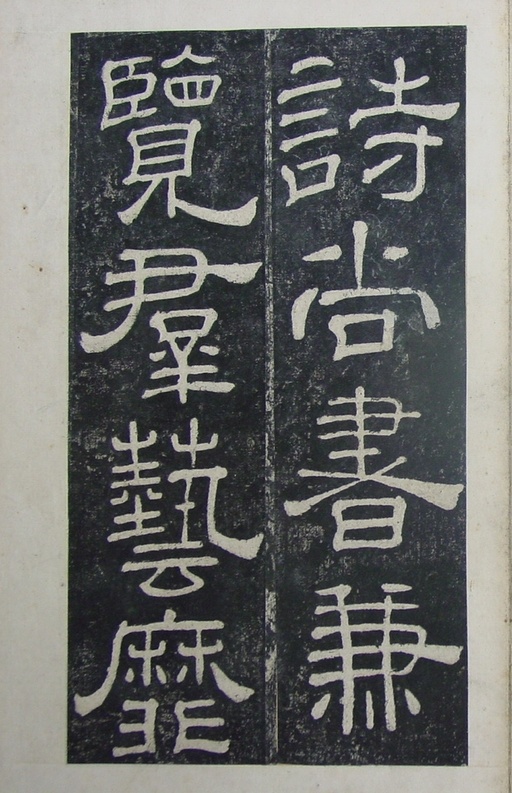 詩尚書兼
覽羣藝靡